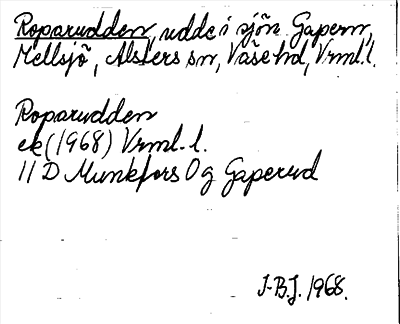 Roparudden, udde i sjön Gapern,
Mellsjö, Alsters sn, Väse hd, Vrml.l.
Roparudden
ek (1968) Vrml.l.
11 D Munkfors 0 g Gaperud
J-B.J. 1968.